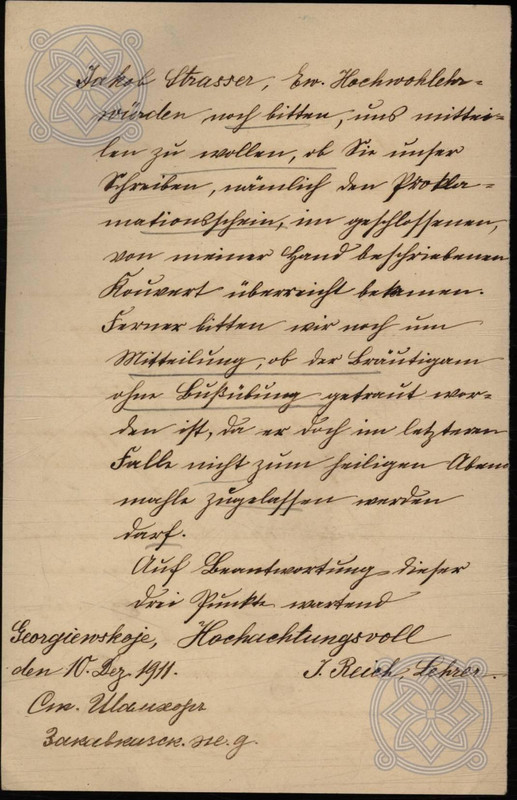 Jakob Strasser, Ew. Hochwohlehr-
würden noch bitten, uns mittei-
len zu wollen, ob Sie unser
Schreiben, nämlich den Prokla-
mationsschein, im geschlossenen,
von meiner Hand beschriebenen
Kouvert überreicht bekamen.
Ferner bitten wir noch um
Mitteilung, ob der Bräutigam
ohne Bußübung getraut wor-
den ist, da er doch im letzteren
Falle nicht zum heiligen Abend
mahle zugelassen werden
darf.
Auf Beantwortung dieser
drei Punkte wartend
Hochachtungsvoll
Georgiewskoje,
den 10. Dez. 1911.
J. Reich, Lehrer.
Ст. Шамхоръ
Закавказск. ж. д.